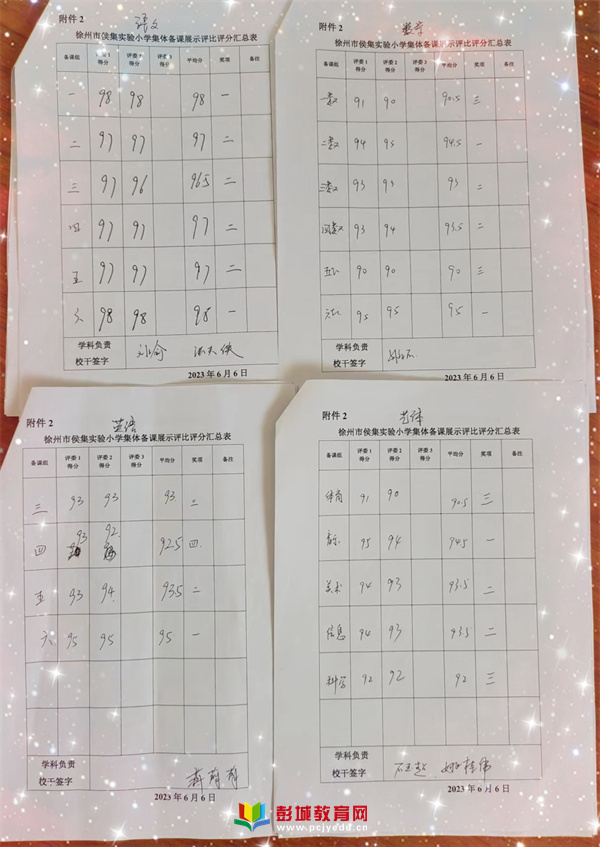 附件 2
语文
徐州市侯集实验小学集体备课展示评比评分汇总表
备课组 评委 1 得分 评委 2 得分 评委 3 得分 平均分 奖项 备注
一 98 98 98 一
二 97 97 97 二
三 97 96 96.5 二
四 97 97 97 二
五 97 97 97 二
六 98 98 98 一
学科负责
校干签字
2023 年 6 月 6 日
附件 2
数学
徐州市侯集实验小学集体备课展示评比评分汇总表
备课组 评委 1 得分 评委 2 得分 评委 3 得分 平均分 奖项 备注
一数 91 90 90.5 三
二数 94 95 94.5 一
三数 93 93 93 二
四数 93 94 93.5 二
五 90 90 90 三
六 95 95 95 一
学科负责
校干签字
2023 年 6 月 6 日
附件 2
英语
徐州市侯集实验小学集体备课展示评比评分汇总表
备课组 评委 1 得分 评委 2 得分 评委 3 得分 平均分 奖项 备注
三 93 93 93 二
四 93 92 92.5 四
五 93 94 93.5 二
六 95 95 95 一
学科负责
校干签字
2023 年 6 月 6 日
附件 2
艺体
徐州市侯集实验小学集体备课展示评比评分汇总表
备课组 评委 1 得分 评委 2 得分 评委 3 得分 平均分 奖项 备注
体育 91 90 90.5 三
音乐 95 94 94.5 一
美术 94 93 93.5 二
信息 94 93 93.5 二
科学 92 92 92 三
学科负责
校干签字
2023 年 6 月 6 日
彭城教育网
www.pcjyedu.cn